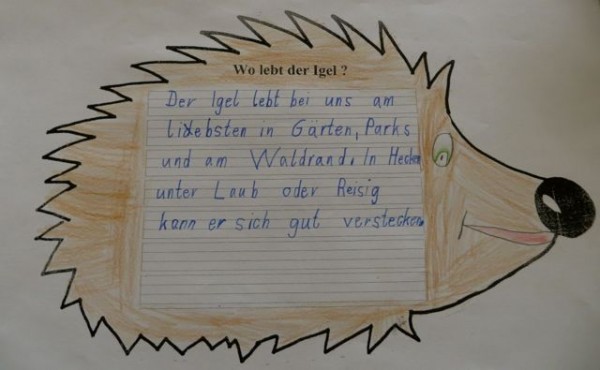 Wo lebt der Igel ?
Der Igel lebt bei uns am
liebsten in Gärten, Parks
und am Waldrand. In Hecken
unter Laub oder Reisig
kann er sich gut verstecken.